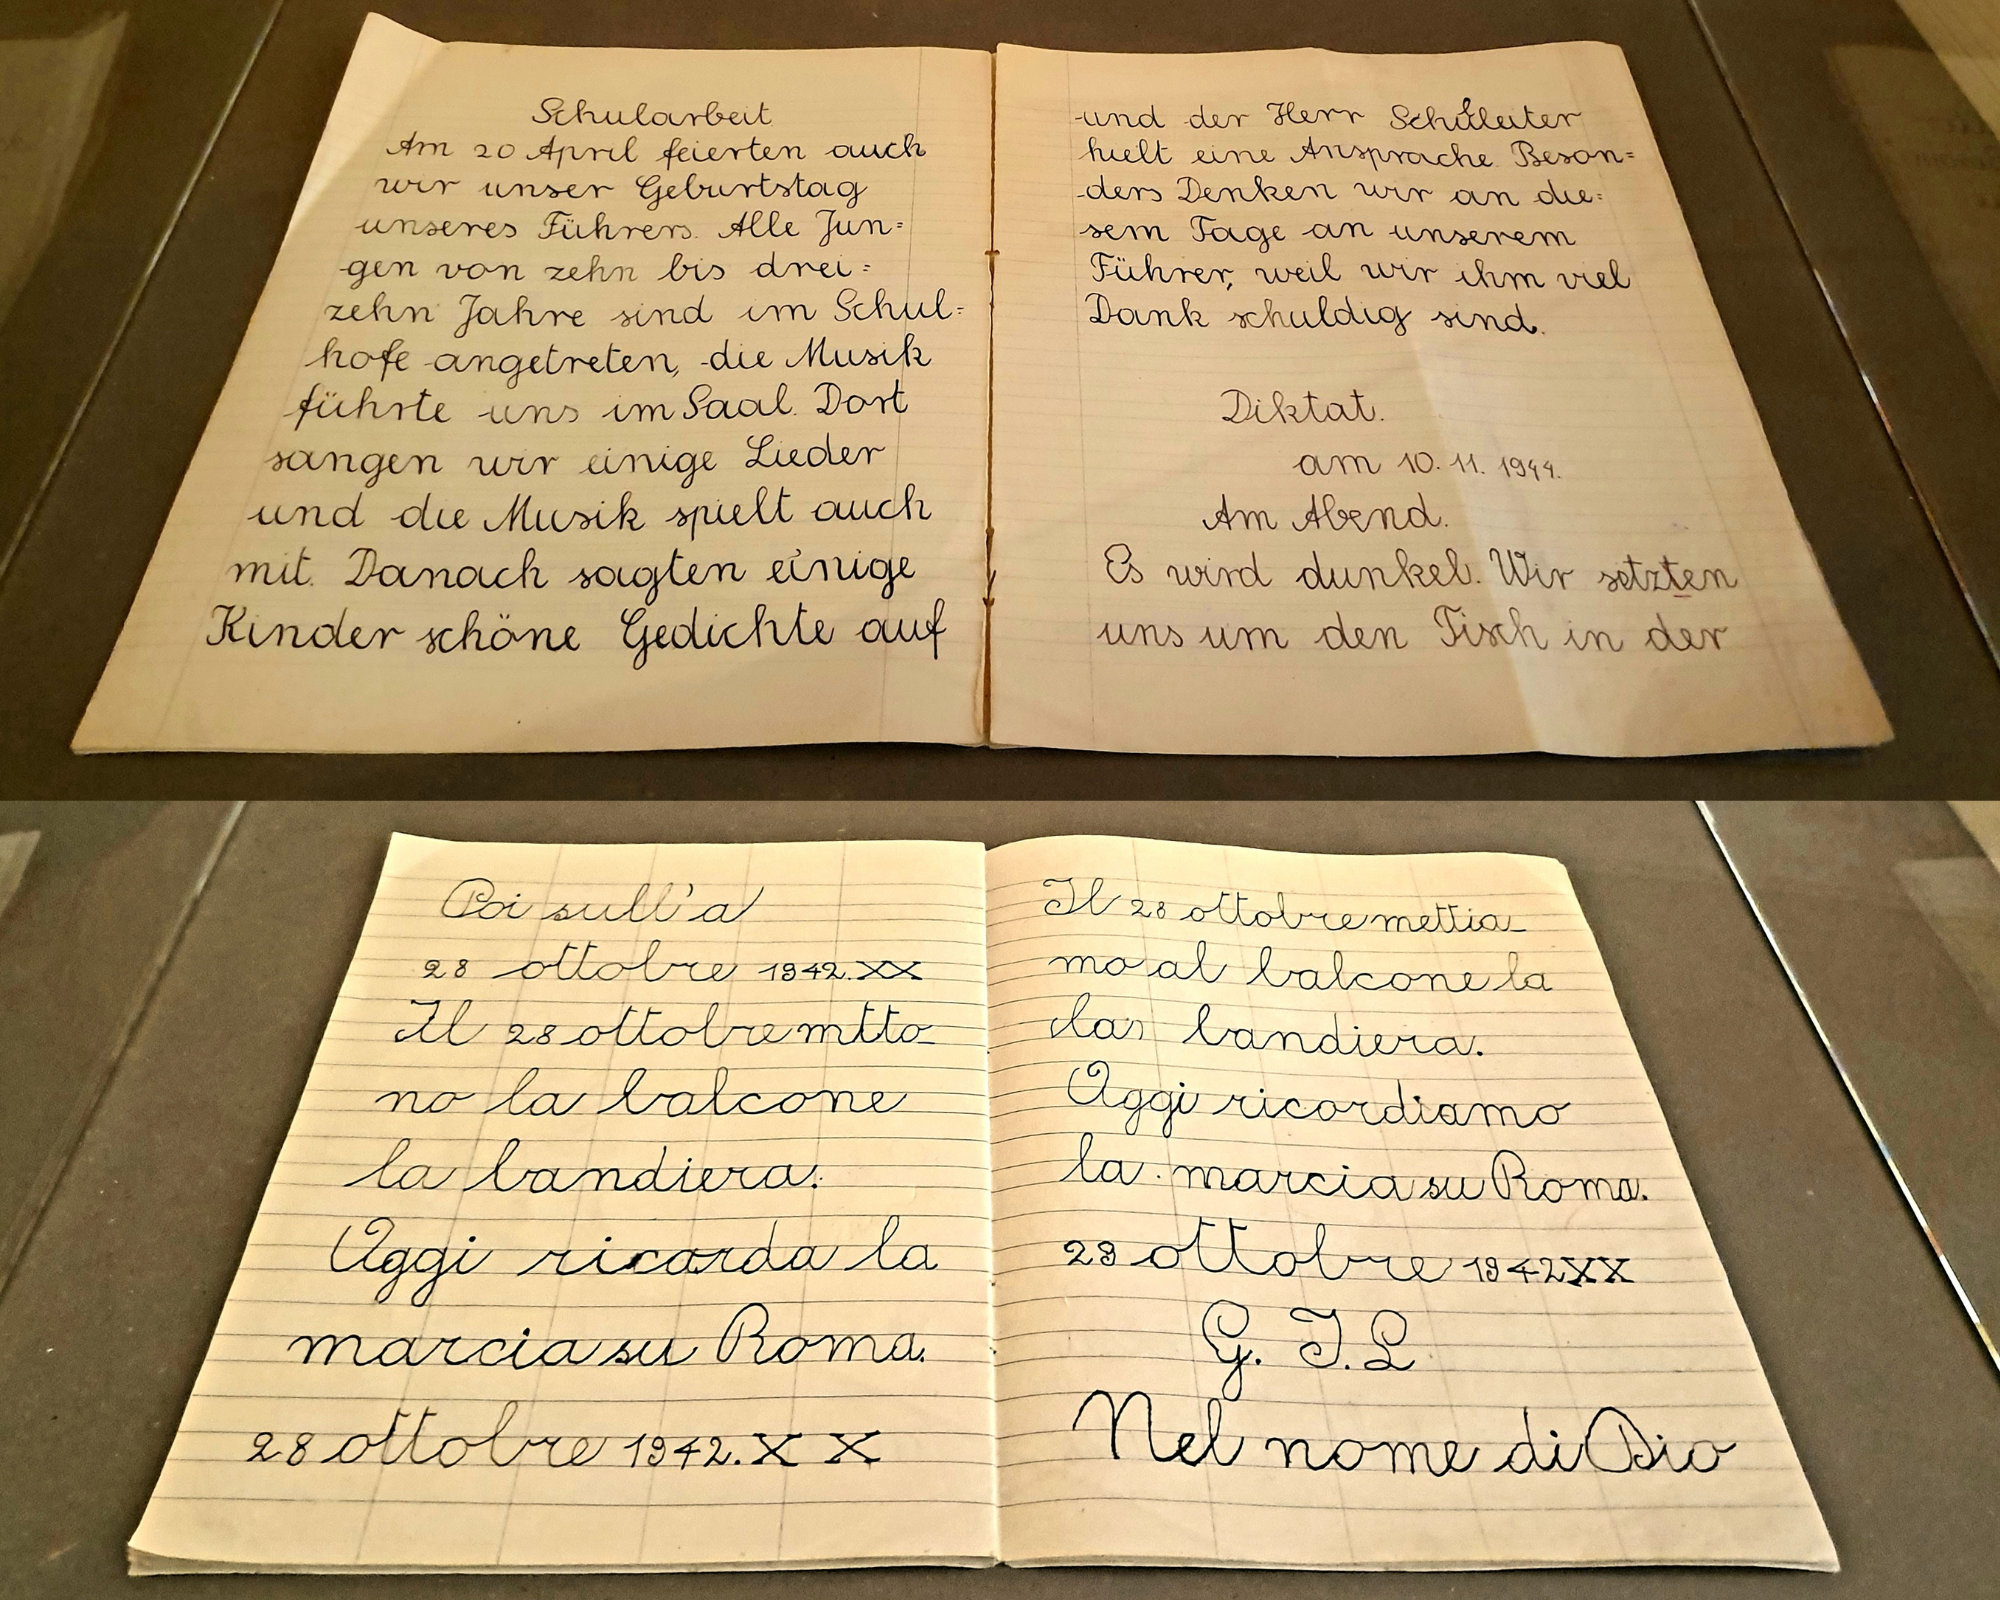 Schularbeit
Am 20 April feierten auch
wir unser Geburtstag
unseres Führers. Alle Jun=
gen von zehn bis drei=
zehn Jahre sind im Schul=
hofe angetreten, die Musik
führte uns im Saal. Dort
sangen wir einige Lieder
und die Musik spielt auch
mit. Danach sagten einige
Kinder schöne Gedichte auf
und der Herr Schulleiter
hielt eine Ansprache Beson=
ders Denken wir an die=
sem Tage an unserem
Führer, weil wir ihm viel
Dank schuldig sind.
Diktat.
am 10. 11. 1944.
Am Abend.
Es wird dunkel. Wir setzten
uns um den Tisch in der
Poi sull'a
28 ottobre 1942.XX
Il 28 ottobre mtto-
no la balcone
la bandiera.
Oggi ricorda la
marcia su Roma.
28 ottobre 1942.XX
Il 28 ottobre mettia-
mo al balcone la
la bandiera.
Oggi ricordiamo
la marcia su Roma.
29 ottobre 1942XX
G. I. L
Nel nome di Dio